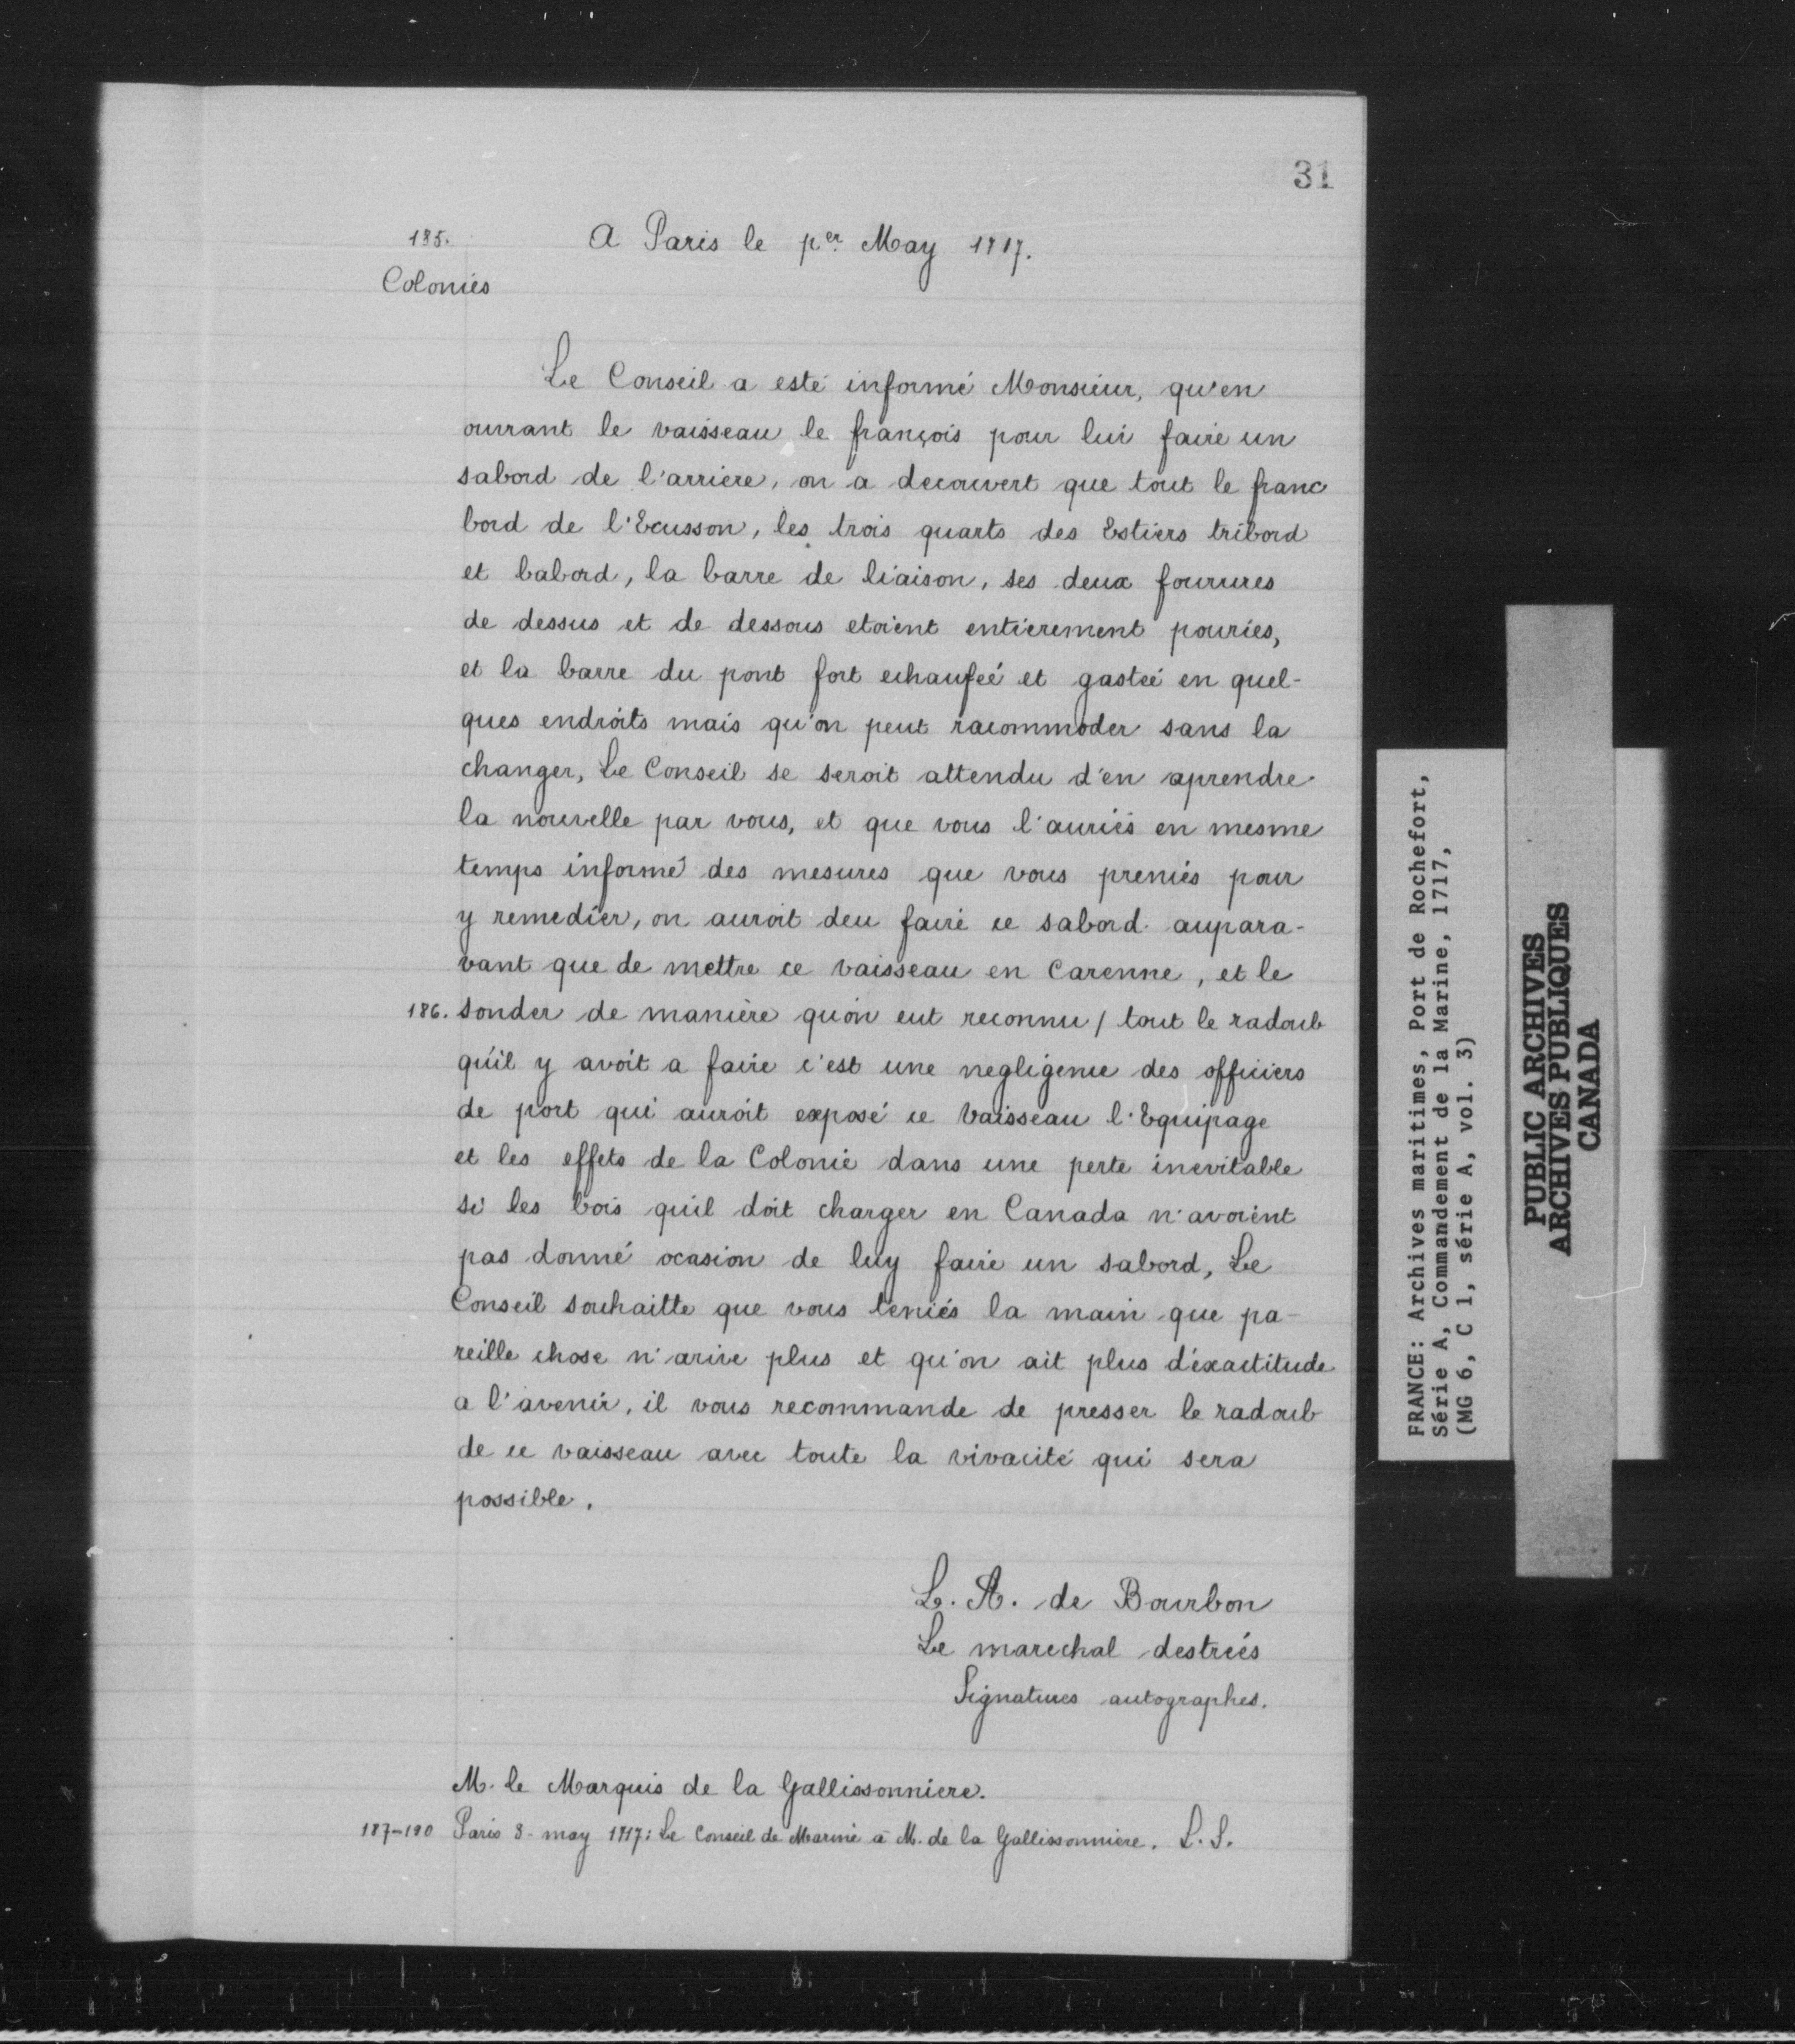 31
185. A Paris le per May 1717.
Colonies
Le Conseil a esté informé Monsieur, qu'en
ouvrant le vaisseau le françois pour lui faire un
sabord de l'arriere, on a decouvert que tout le franc
bord de l'Ecusson, les trois quarts des Estiers tribord
et babord, la barre de liaison, ses deux fourures
de dessus et de dessous etoient entierement pouries,
et la barre du pont fort echauffeé et gasteé en quel-
ques endroits mais qu'on peut racommoder sans la
changer, Le Conseil se seroit attendu d'en aprendre
la nouvelle par vous, et que vous l'auriés en mesme
temps informé des mesures que vous preniés pour
y remedier, on auroit deu faire ce sabord aupara-
vant que de mettre ce vaisseau en Carenne, et le
186. sonder de maniere qu'on eut reconnu / tout le radoub
qu'il y avoit a faire c'est une negligence des officiers
de port qui auroit exposé ce Vaisseau l'Equipage
et les effets de la Colonie dans une perte inevitable
si les bois quil doit charger en Canada n'avoient
pas donné ocasion de luy faire un sabord, Le
Conseil souhaitte que vous teniés la main que pa-
reille chose n'arive plus et qu'on ait plus d'éxactitude
a l'avenir, il vous recommande de presser le radoub
de ce vaisseau avec toute la vivacité qui sera
possible.
L. A. de Bourbon
Le marechal destreés
Signatures autographes.
M. le Marquis de la Gallissonniere.
187-190 Paris 8 may 1717: Le Conseil de Marine à M. de la Gallissonniere. L. S.
FRANCE: Archives maritimes, Port de Rochefort,
Série A, Commandement de la Marine, 1717,
(MG 6, C 1, série A, vol. 3)
PUBLIC ARCHIVES
ARCHIVES PUBLIQUES
CANADA